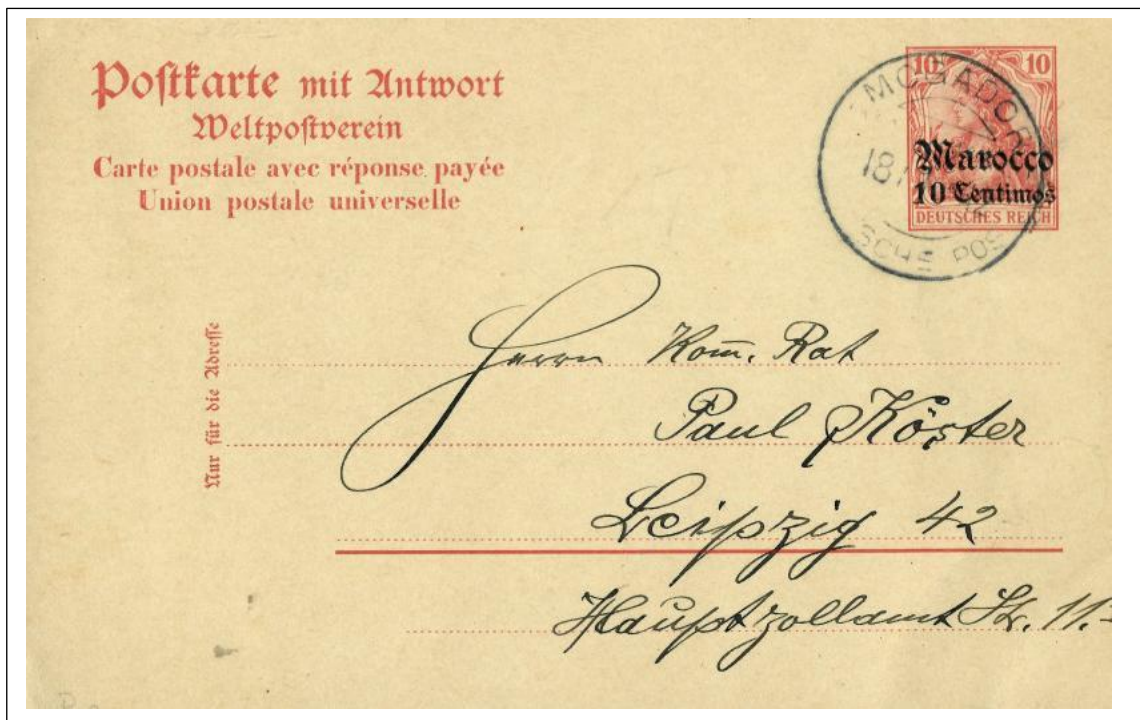 Postkarte mit Antwort
Weltpostverein
Carte postale avec réponse payée
Union postale universelle
10 10
Marocco
10 Centimos
DEUTSCHES REICH
MOGADOR
18
SCHE POS
Nur für die Adresse
Herrn Kom̅. Rat
Paul Köster
Leipzig 42
Hauptzollamt Str. 11.